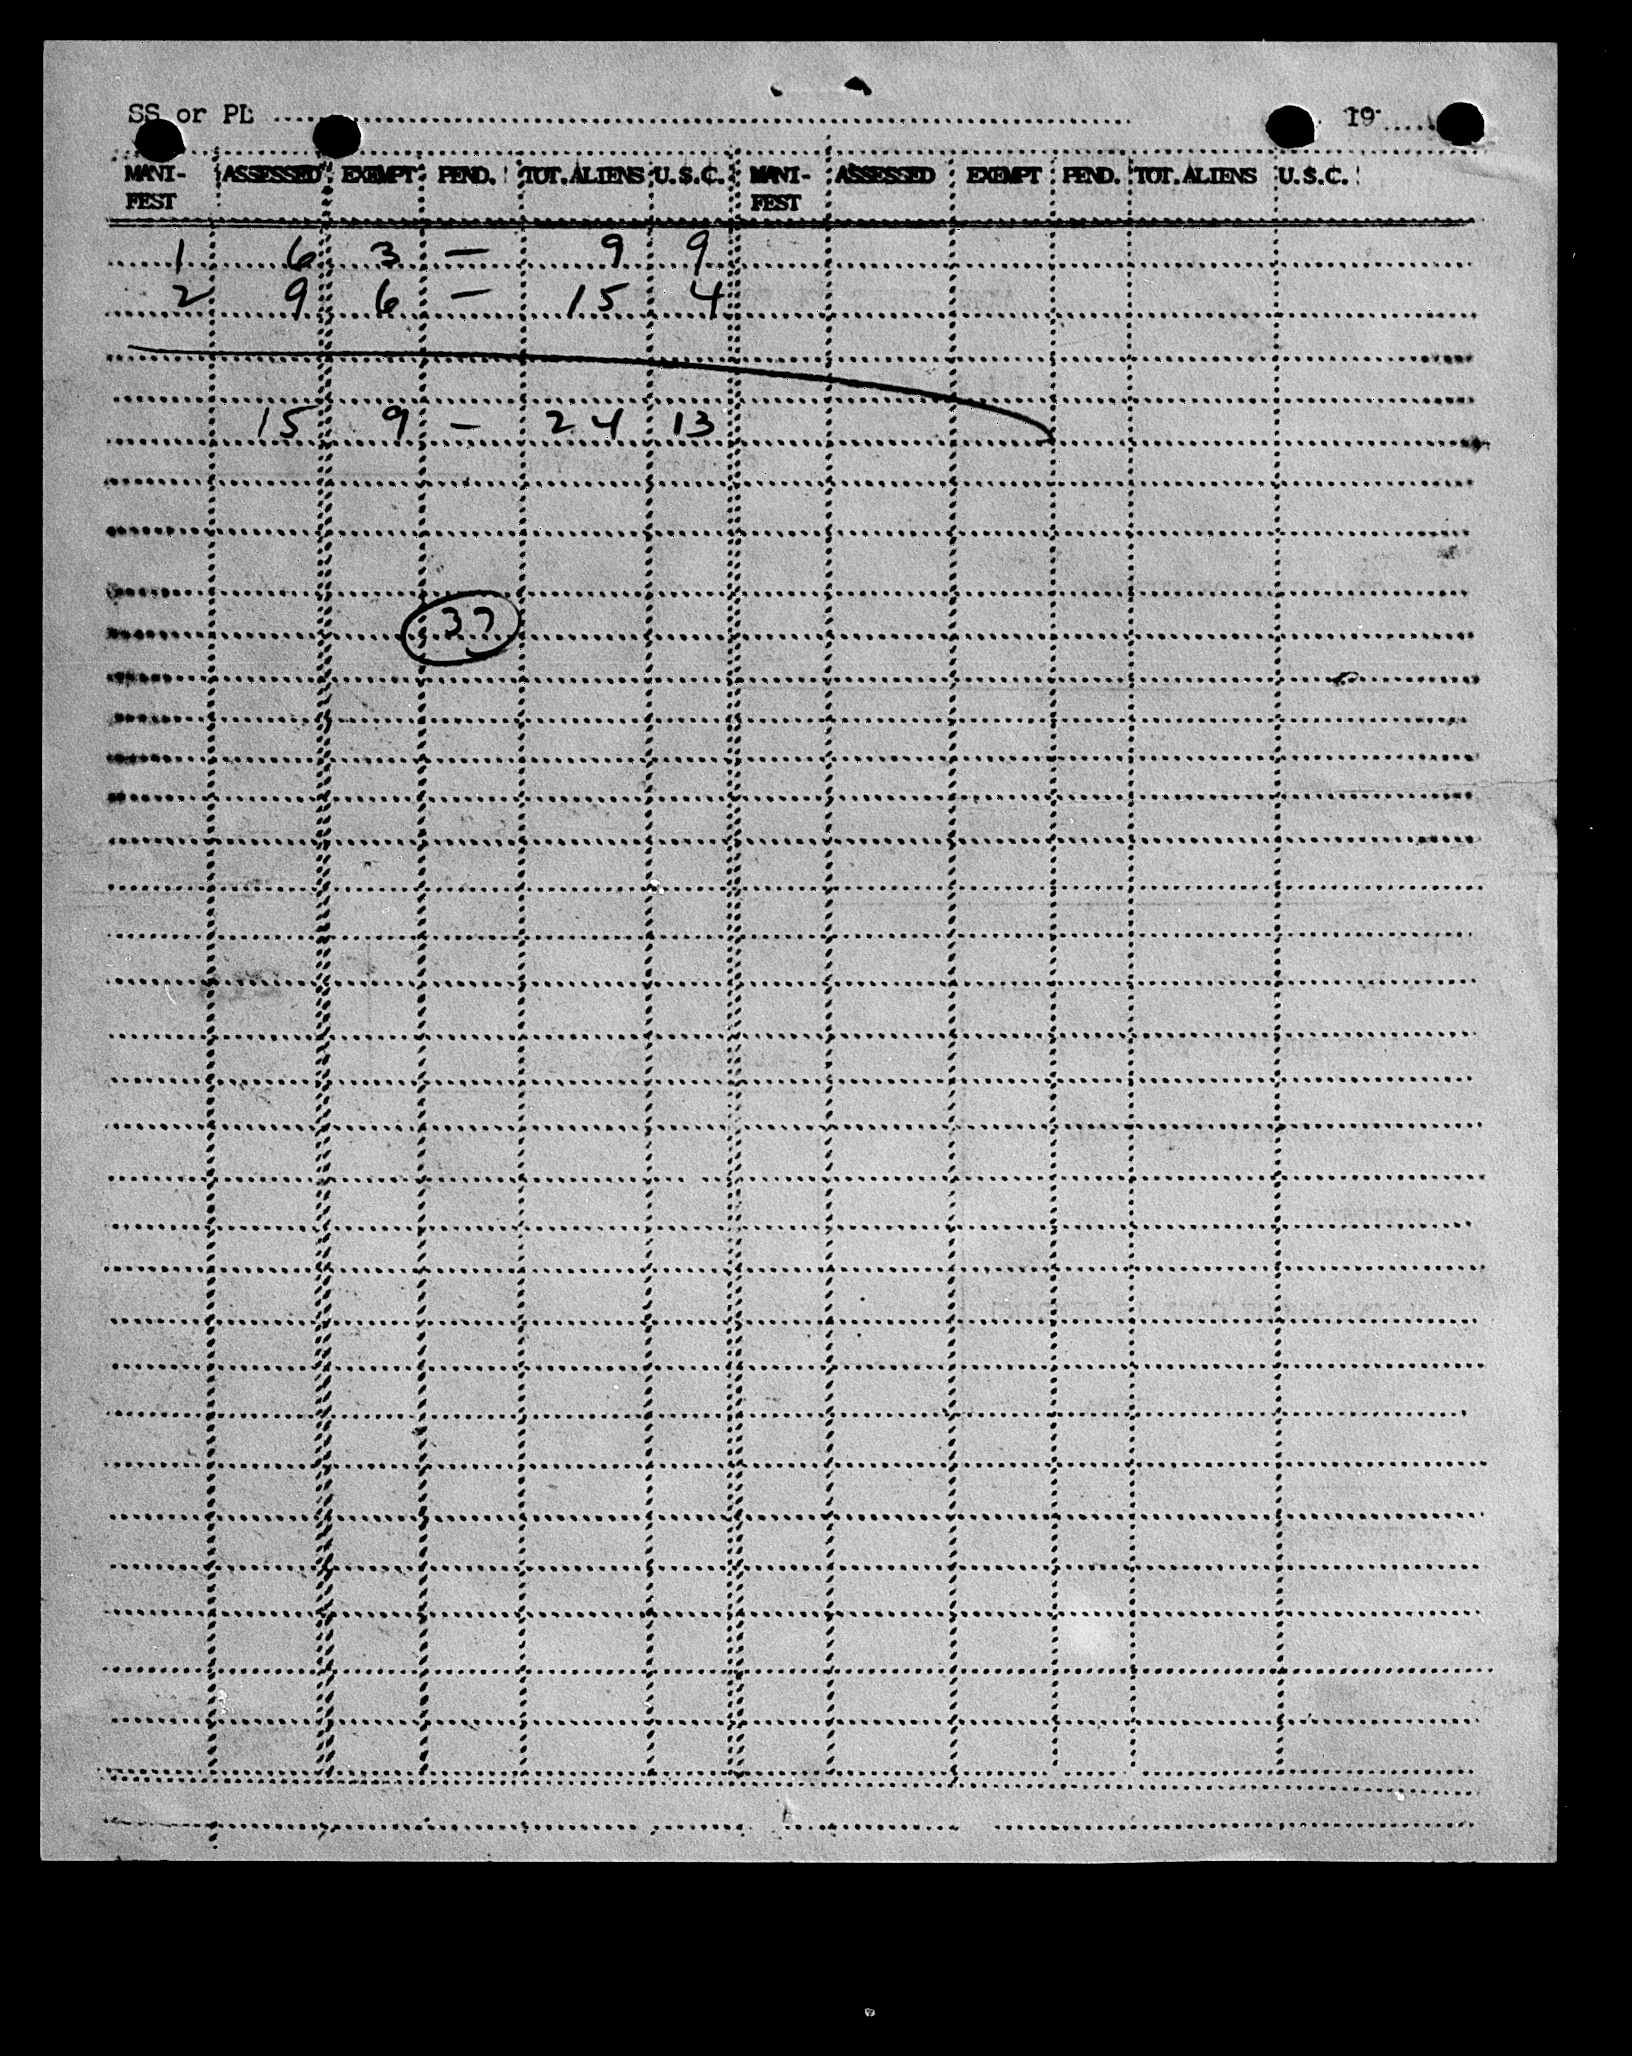 SS or PL 19
MANI-FEST ASSESSED EXEMPT PEND. TOT.ALIENS U.S.C. MANI-FEST ASSESSED EXEMPT PEND. TOT.ALIENS U.S.C.
1 6 3 — 9 9
2 9 6 — 15 4
15 9 — 24 13
37